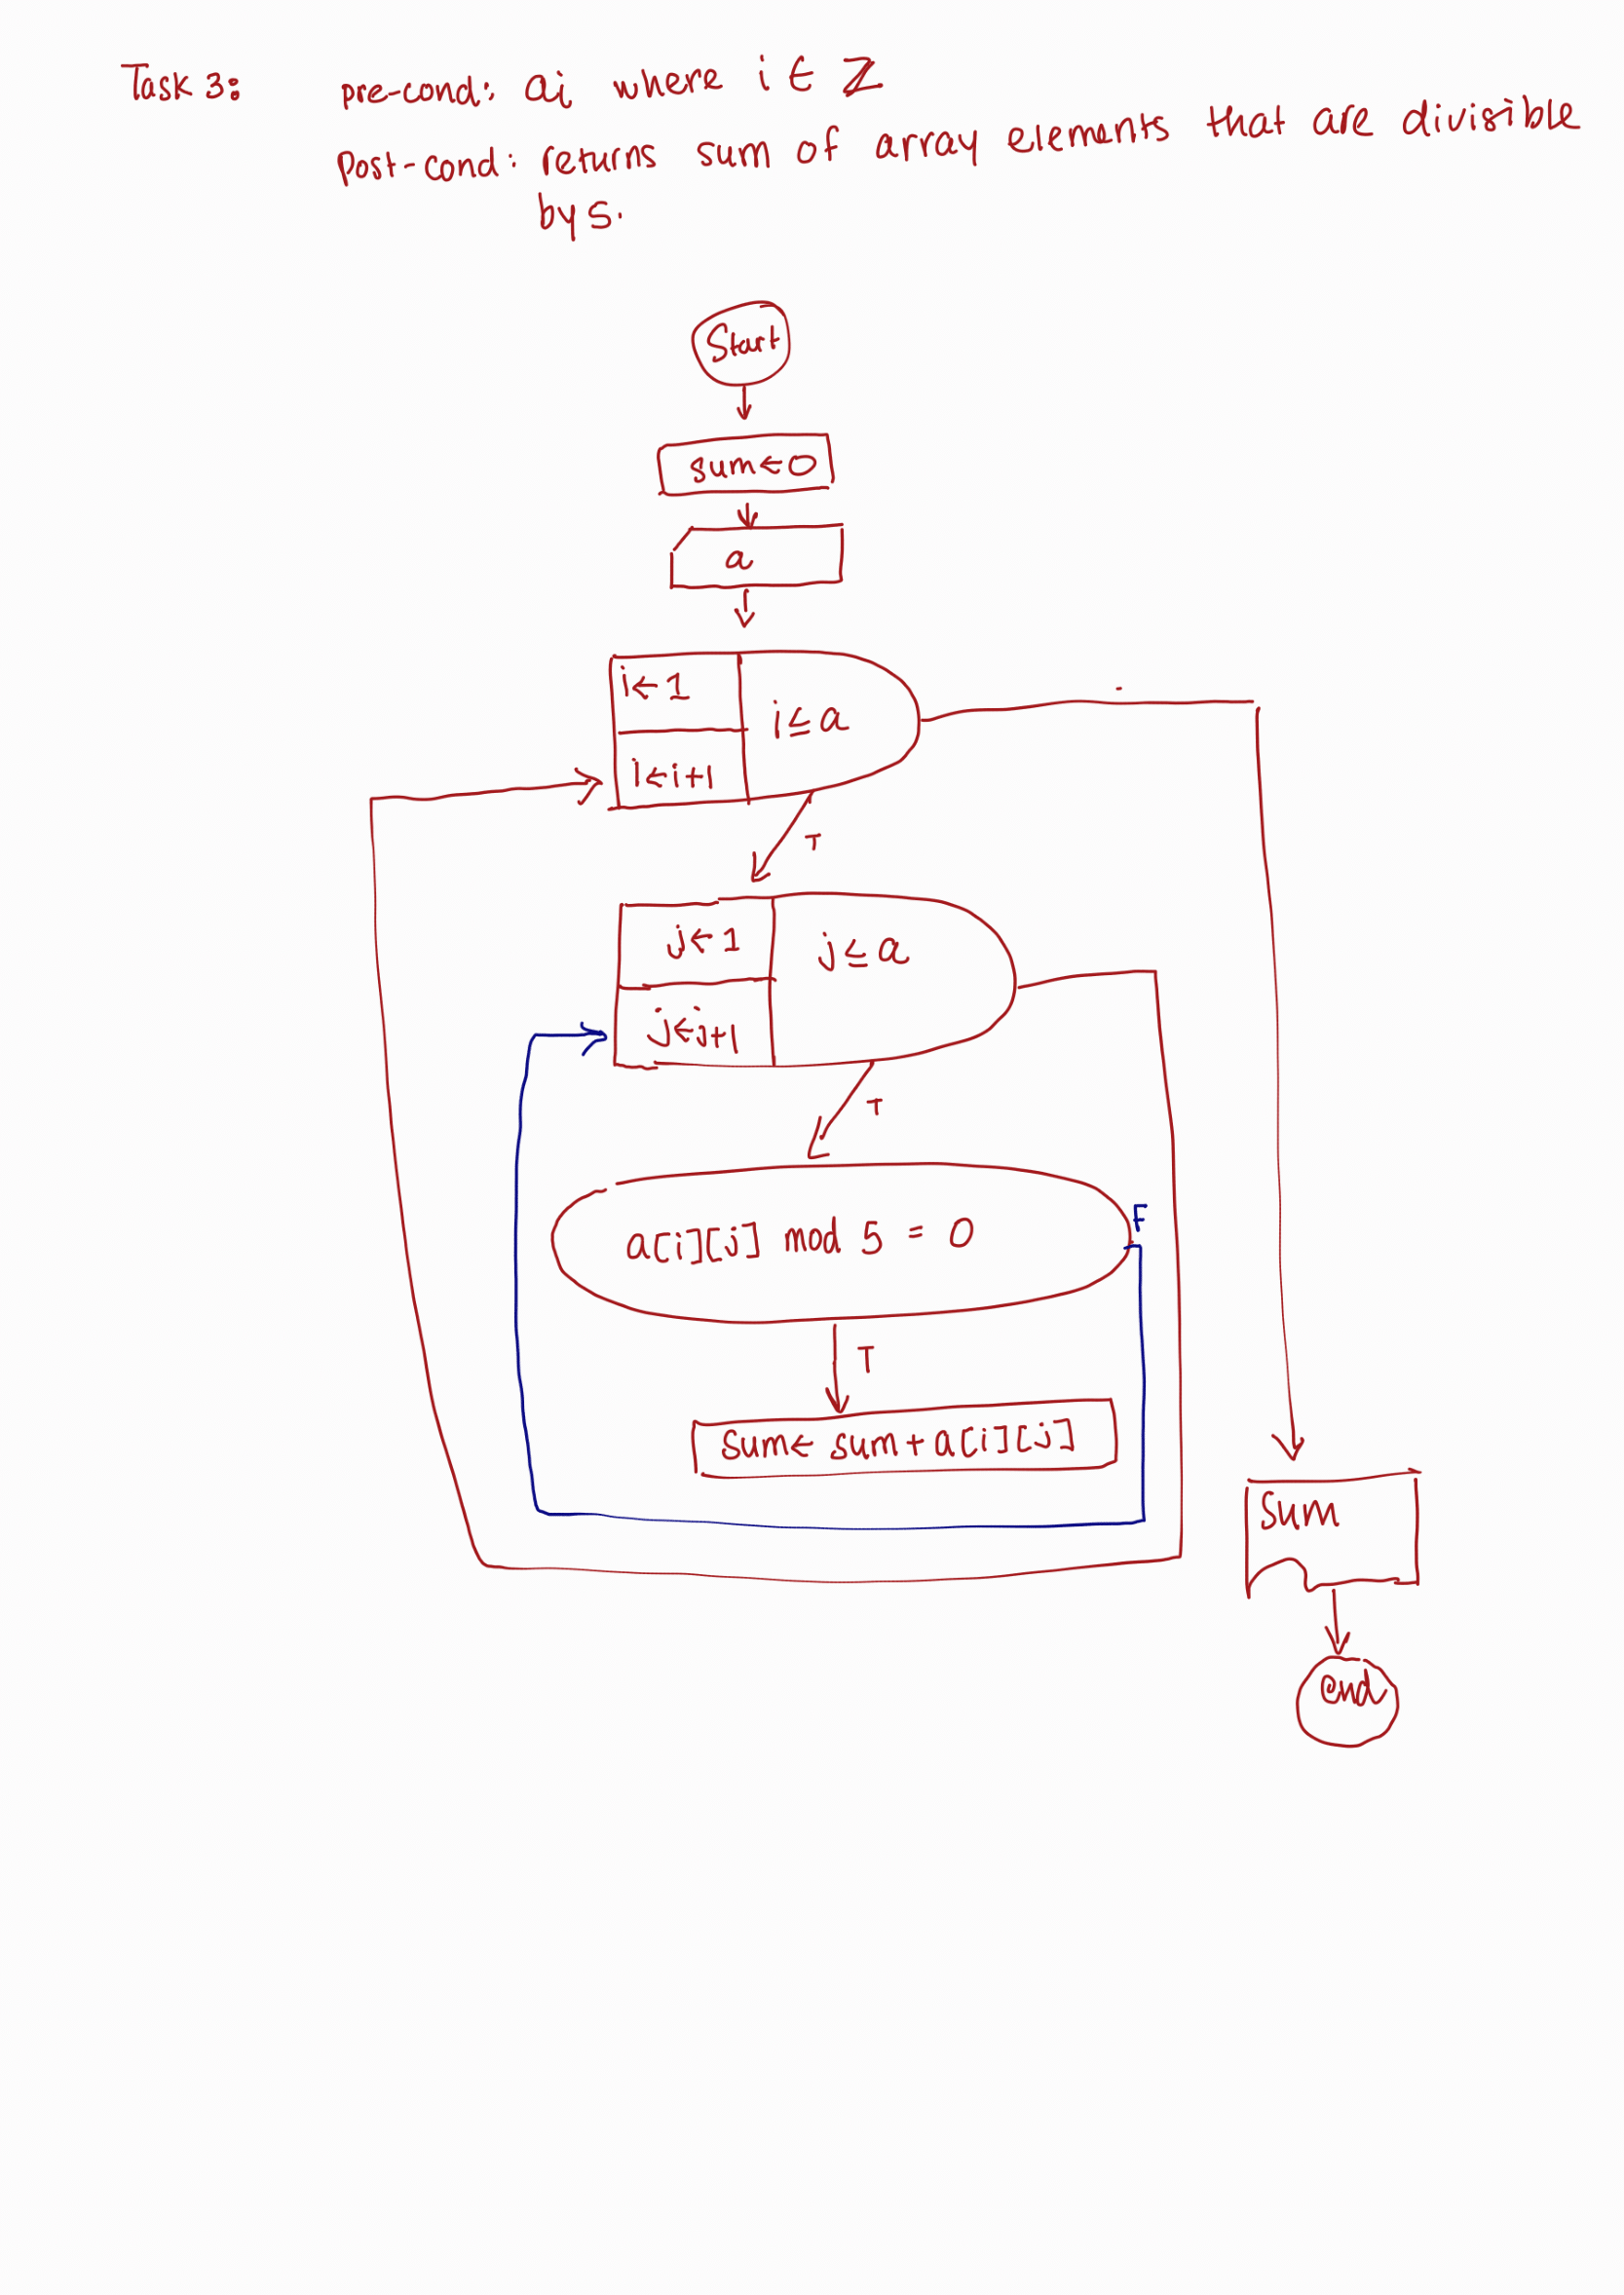 Task 3:
pre-cond: ai where i ∈ Z
Post-cond: returns sum of array elements that are divisible
by 5.
Start
sum←0
a
i←1
i≤a
i←i+1
T
j←1
j≤a
j←j+1
T
a[i][j] mod 5 = 0
F
T
sum← sum+a[i][j]
Sum
end